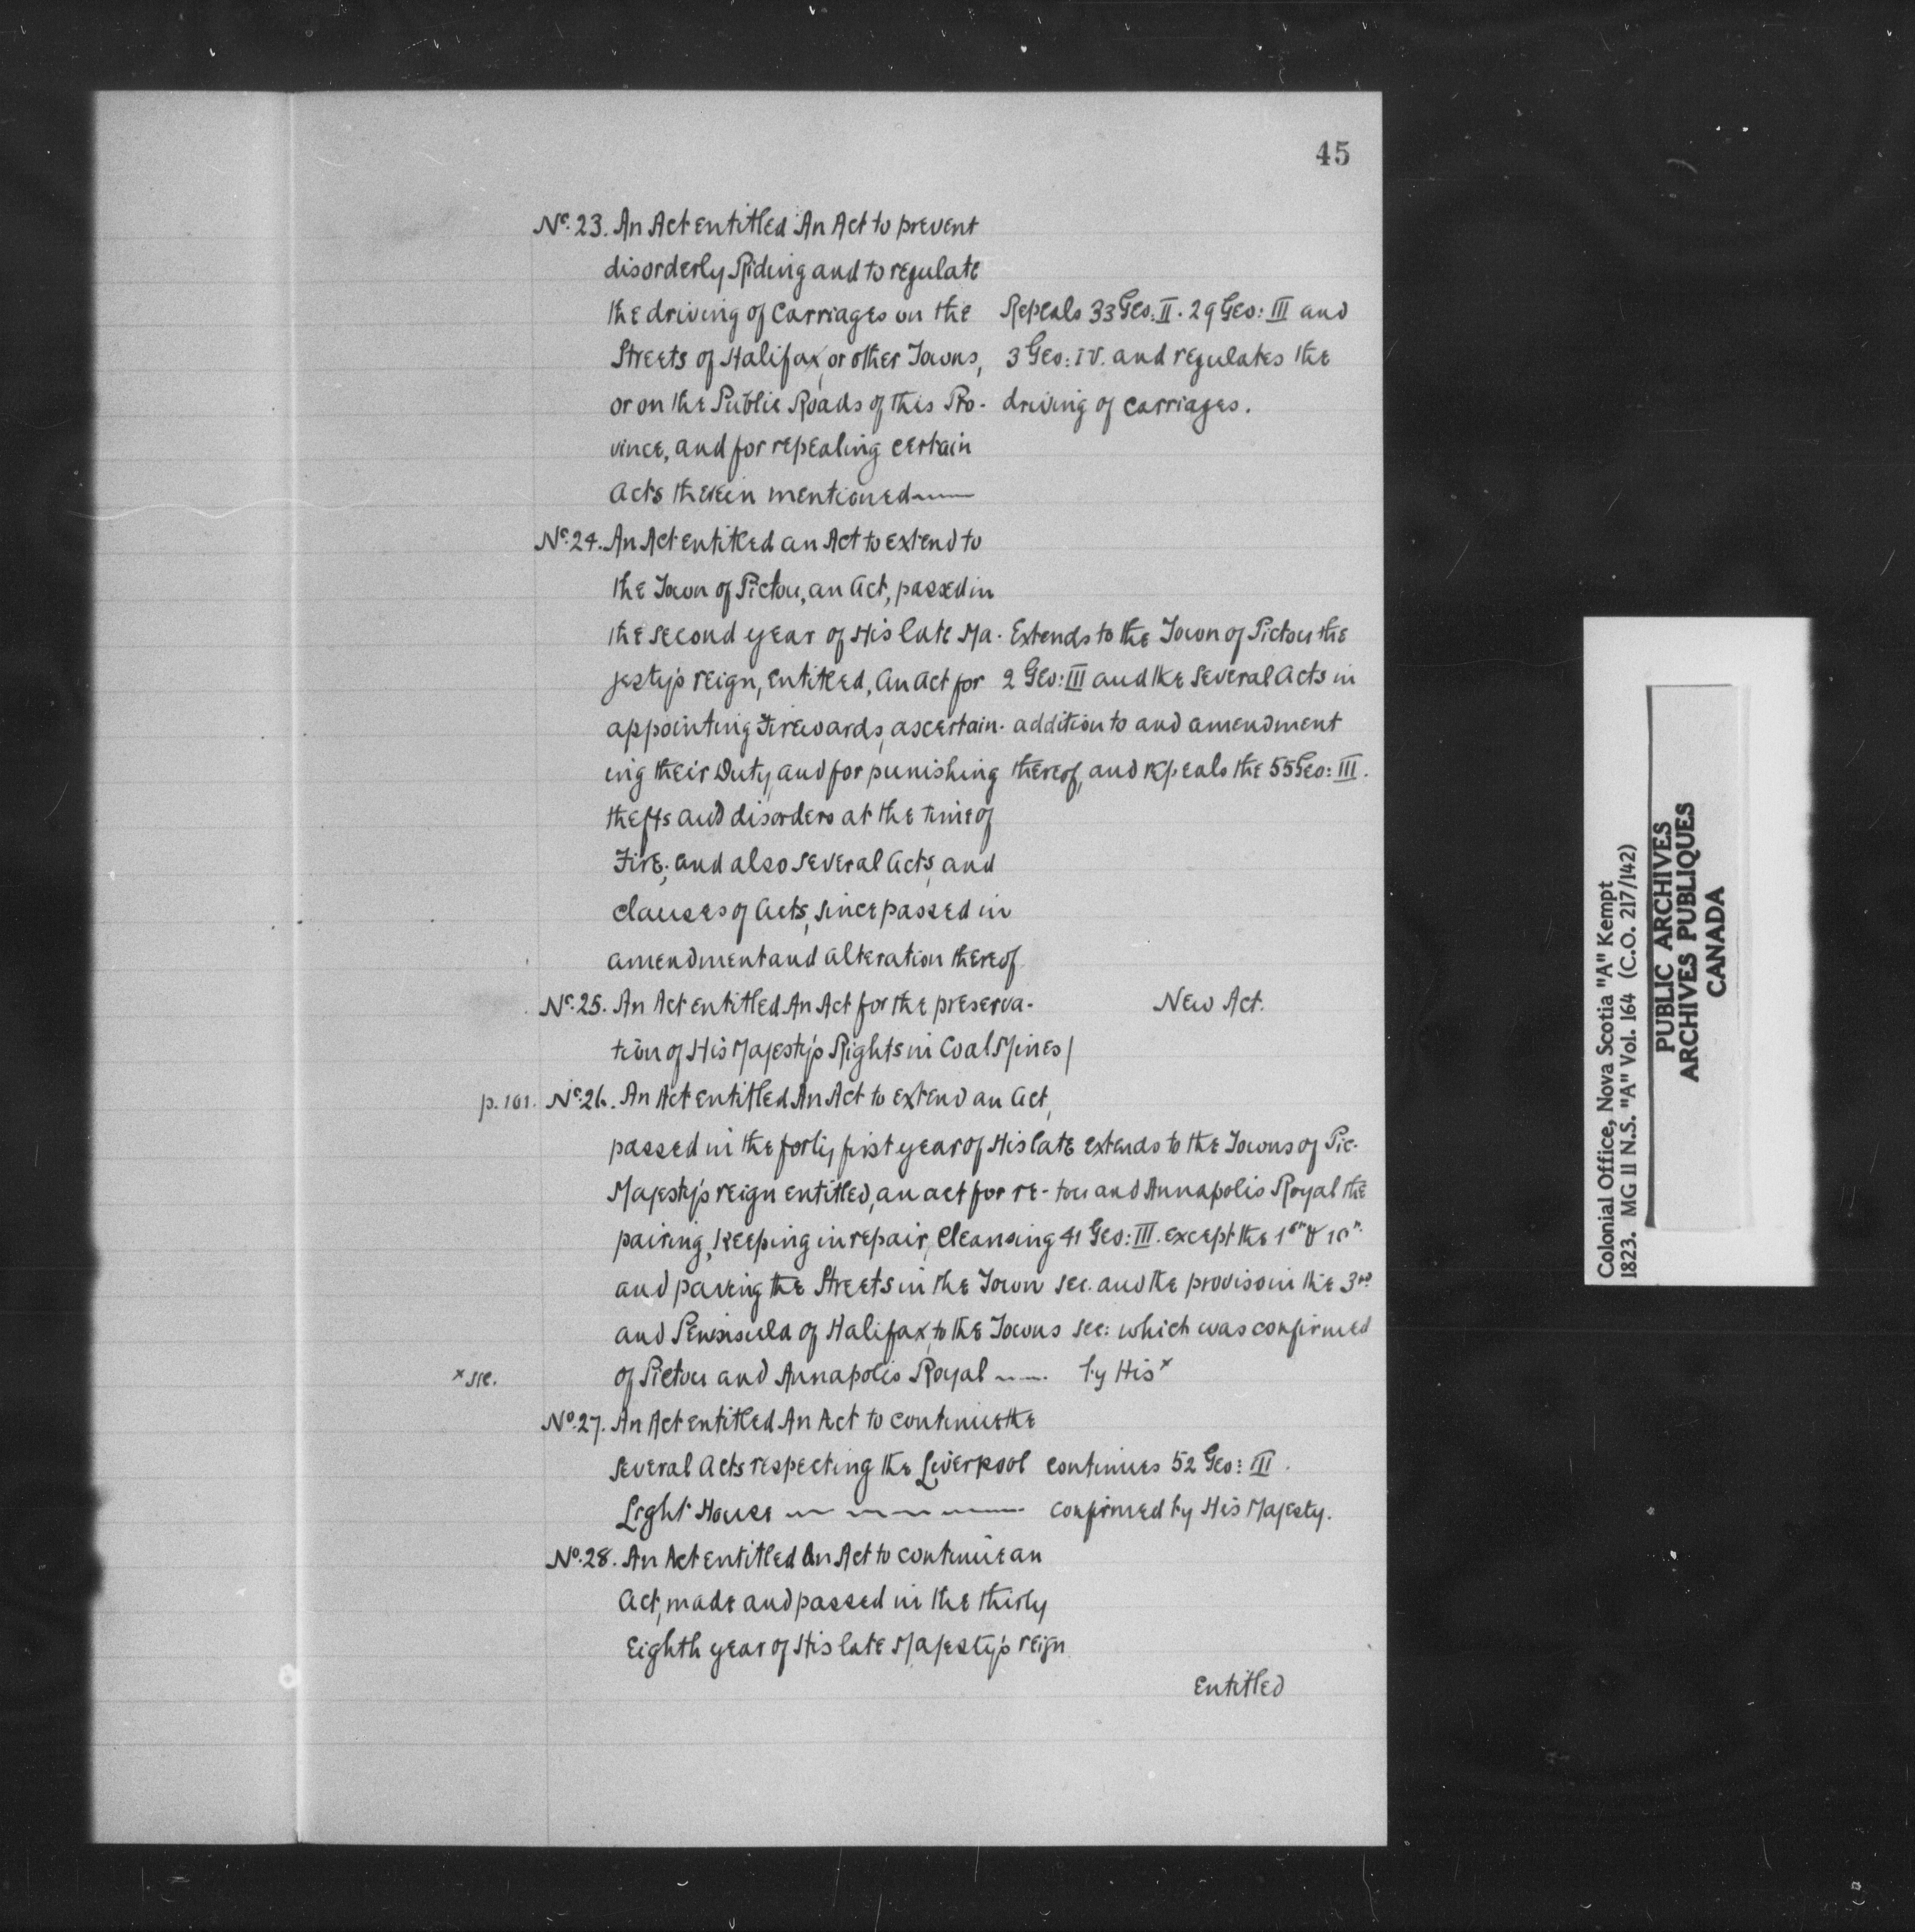 45
No. 23. An Act entitled An Act to prevent
disorderly Riding and to regulate
the driving of Carriages on the Repeals 33 Geo: II. 29 Geo: III and
Streets of Halifax, or other Towns, 3 Geo: IV. and regulates the
or on the Public Roads of this Pro- driving of carriages.
vince, and for repealing certain
Acts therein mentioned
No. 24. An Act entitled an Act to extend to
the Town of Pictou, an Act, passed in
the second year of His late Ma- Extends to the Town of Pictou the
jesty's reign, entitled, An Act for 2 Geo: III and the several Acts in
appointing Firewards, ascertain- addition to and amendment
ing their Duty, and for punishing thereof, and repeals the 55 Geo: III.
thefts and disorders at the time of
Fire; and also several Acts, and
clauses of Acts, since passed in
amendment and alteration thereof
No. 25. An Act entitled An Act for the preserva- New Act.
tion of His Majesty's Rights in Coal Mines /
p. 101. No. 26. An Act entitled An Act to extend an Act,
passed in the forty first year of His late extends to the Towns of Pic-
Majesty's reign entitled, an act for re- tou and Annapolis Royal the
pairing, keeping in repair, cleansing 41 Geo: III. except the &
and paving the Streets in the Town sec. and the proviso in the 3rd
and Peninsula of Halifax, to the Towns sec: which was confirmed
x sic. of Pictou and Annapolis Royal by His x
No. 27. An Act entitled An Act to continue the
several Acts respecting the Liverpool continues 52 Geo: III.
Light House confirmed by His Majesty.
No. 28. An Act entitled An Act to continue an
Act, made and passed in the thirty
Eighth year of His late Majesty's reign
Entitled
Colonial Office, Nova Scotia "A" Kempt
1823. MG 11 N.S. "A" Vol. 164 (C.O. 217/142)
PUBLIC ARCHIVES
ARCHIVES PUBLIQUES
CANADA